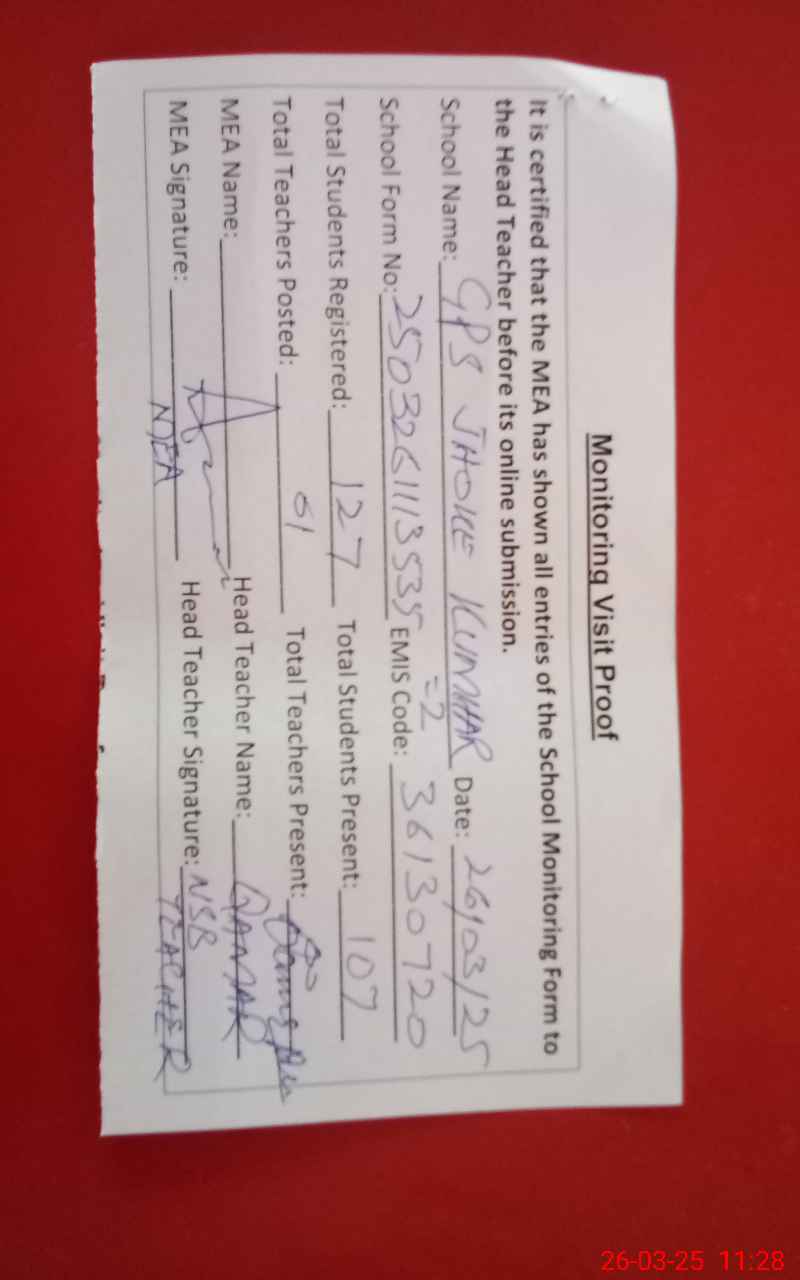 Monitoring Visit Proof
It is certified that the MEA has shown all entries of the School Monitoring Form to
the Head Teacher before its online submission.
School Name: GPS JHOKE KUMHAR Date: 26/03/25
=2
School Form No: 2503261113535 EMIS Code: 36130720
Total Students Registered: 127 Total Students Present: 107
Total Teachers Posted: 01 Total Teachers Present:
MEA Name: Head Teacher Name: QAMAR
MEA Signature: Head Teacher Signature: NSB
MEA TEACHER
26-03-25 11:28